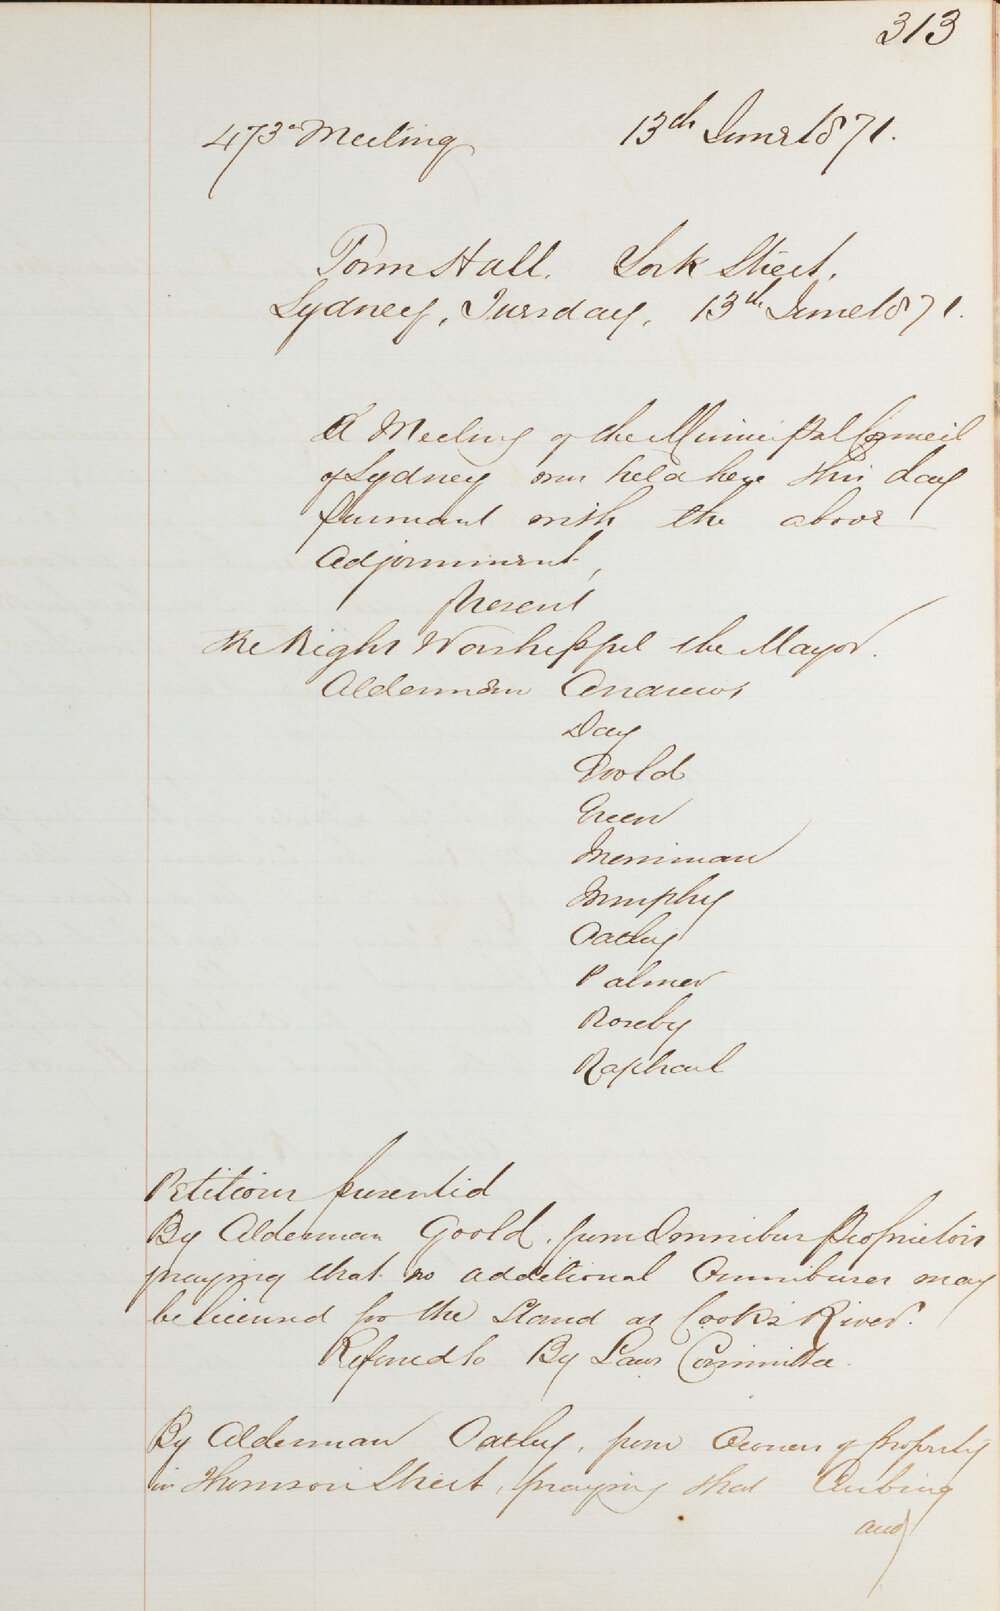 313
473d Meeting 13th June 1871.
Town Hall. York Street,
Sydney, Tuesday, 13th June 1871.
A Meeting of the Municipal Council
of Sydney was held here this day
pursuant with the above
adjournment,
Present
The Right Worshipful the Mayor.
Aldermen Andrews
Day
Goold
Green
Merriman
Murphy
Oatley
Palmer
Roseby
Raphael
Petitions presented
By Alderman Goold, from Omnibus Proprietors
praying that no additional Omnibuses may
be licensed for the Stand at Cook's River.
Referred to By Laws Committee.
By Alderman Oatley, from Owners of Property
in Thomson Street, praying that Curbing
and